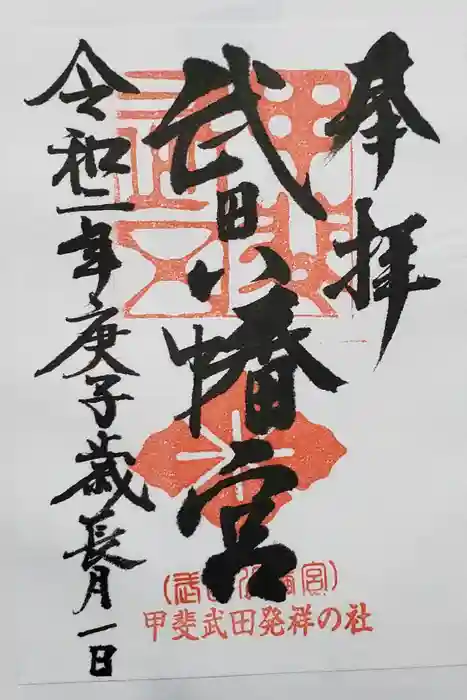 奉拝
武田八幡宮
令和二年庚子歳長月一日
甲斐武田発祥の社